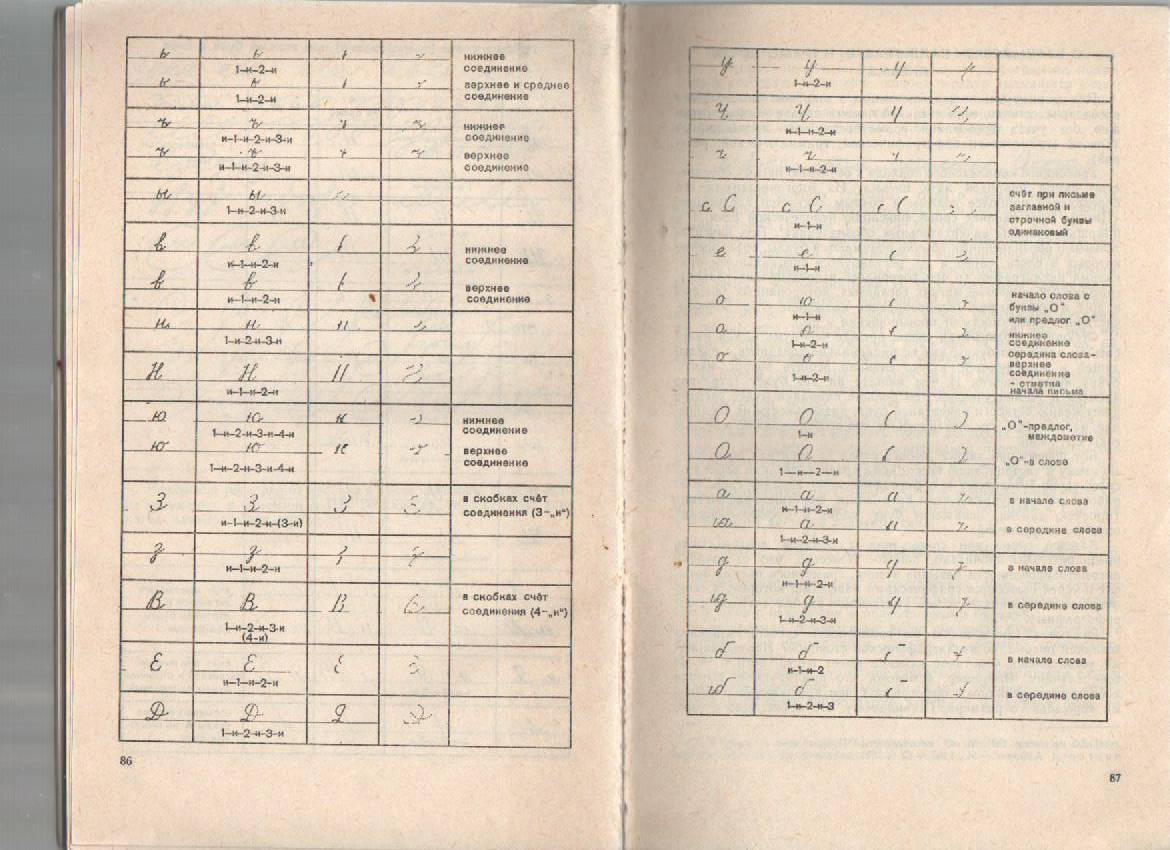 ь ь нижнее
соединение
1-и-2-и
ь ь верхнее и среднее
соединение
1-и-2-и
ъ ъ нижнее
соединение
и-1-и-2-и-3-и
ъ ъ верхнее
соединение
и-1-и-2-и-3-и
ы ы
1-и-2-и-3-и
в в нижнее
соединение
и-1-и-2-и
в в верхнее
соединение
и-1-и-2-и
н н
1-и-2-и-3-и
Н Н
и-1-и-2-и
ю ю нижнее
соединение
1-и-2-и-3-и-4-и
ю ю верхнее
соединение
1-и-2-и-3-и-4-и
З З в скобках счёт
соединения (3-„и“)
и-1-и-2-и-(3-и)
з з
и-1-и-2-и
В В В в скобках счёт
соединения (4-„и“)
1-и-2-и-3-и
(4-и)
Е Е
и-1-и-2-и
Д Д
1-и-2-и-3-и
86
у у
1-и-2-и
Ч Ч
и-1-и-2-и
ч ч
и-1-и-2-и
с С с С счёт при письме
заглавной и
строчной буквы
одинаковый
и-1-и
е е
и-1-и
о начало слова с
буквы „О“
или предлог „О“
и-1-и
о о нижнее
соединение
1-и-2-и
о о середина слова-
верхнее
соединение
1-и-2-и
- отметка
начала письма
О О „О“-предлог,
междометие
1-и
О О „О“-в слове
1-и-2-и
а а в начале слова
и-1-и-2-и
а а в середине слова
1-и-2-и-3-и
д д в начале слова
и-1-и-2-и
д д в середине слова
1-и-2-и-3-и
б б в начале слова
и-1-и-2
б б в середине слова
1-и-2-и-3
87